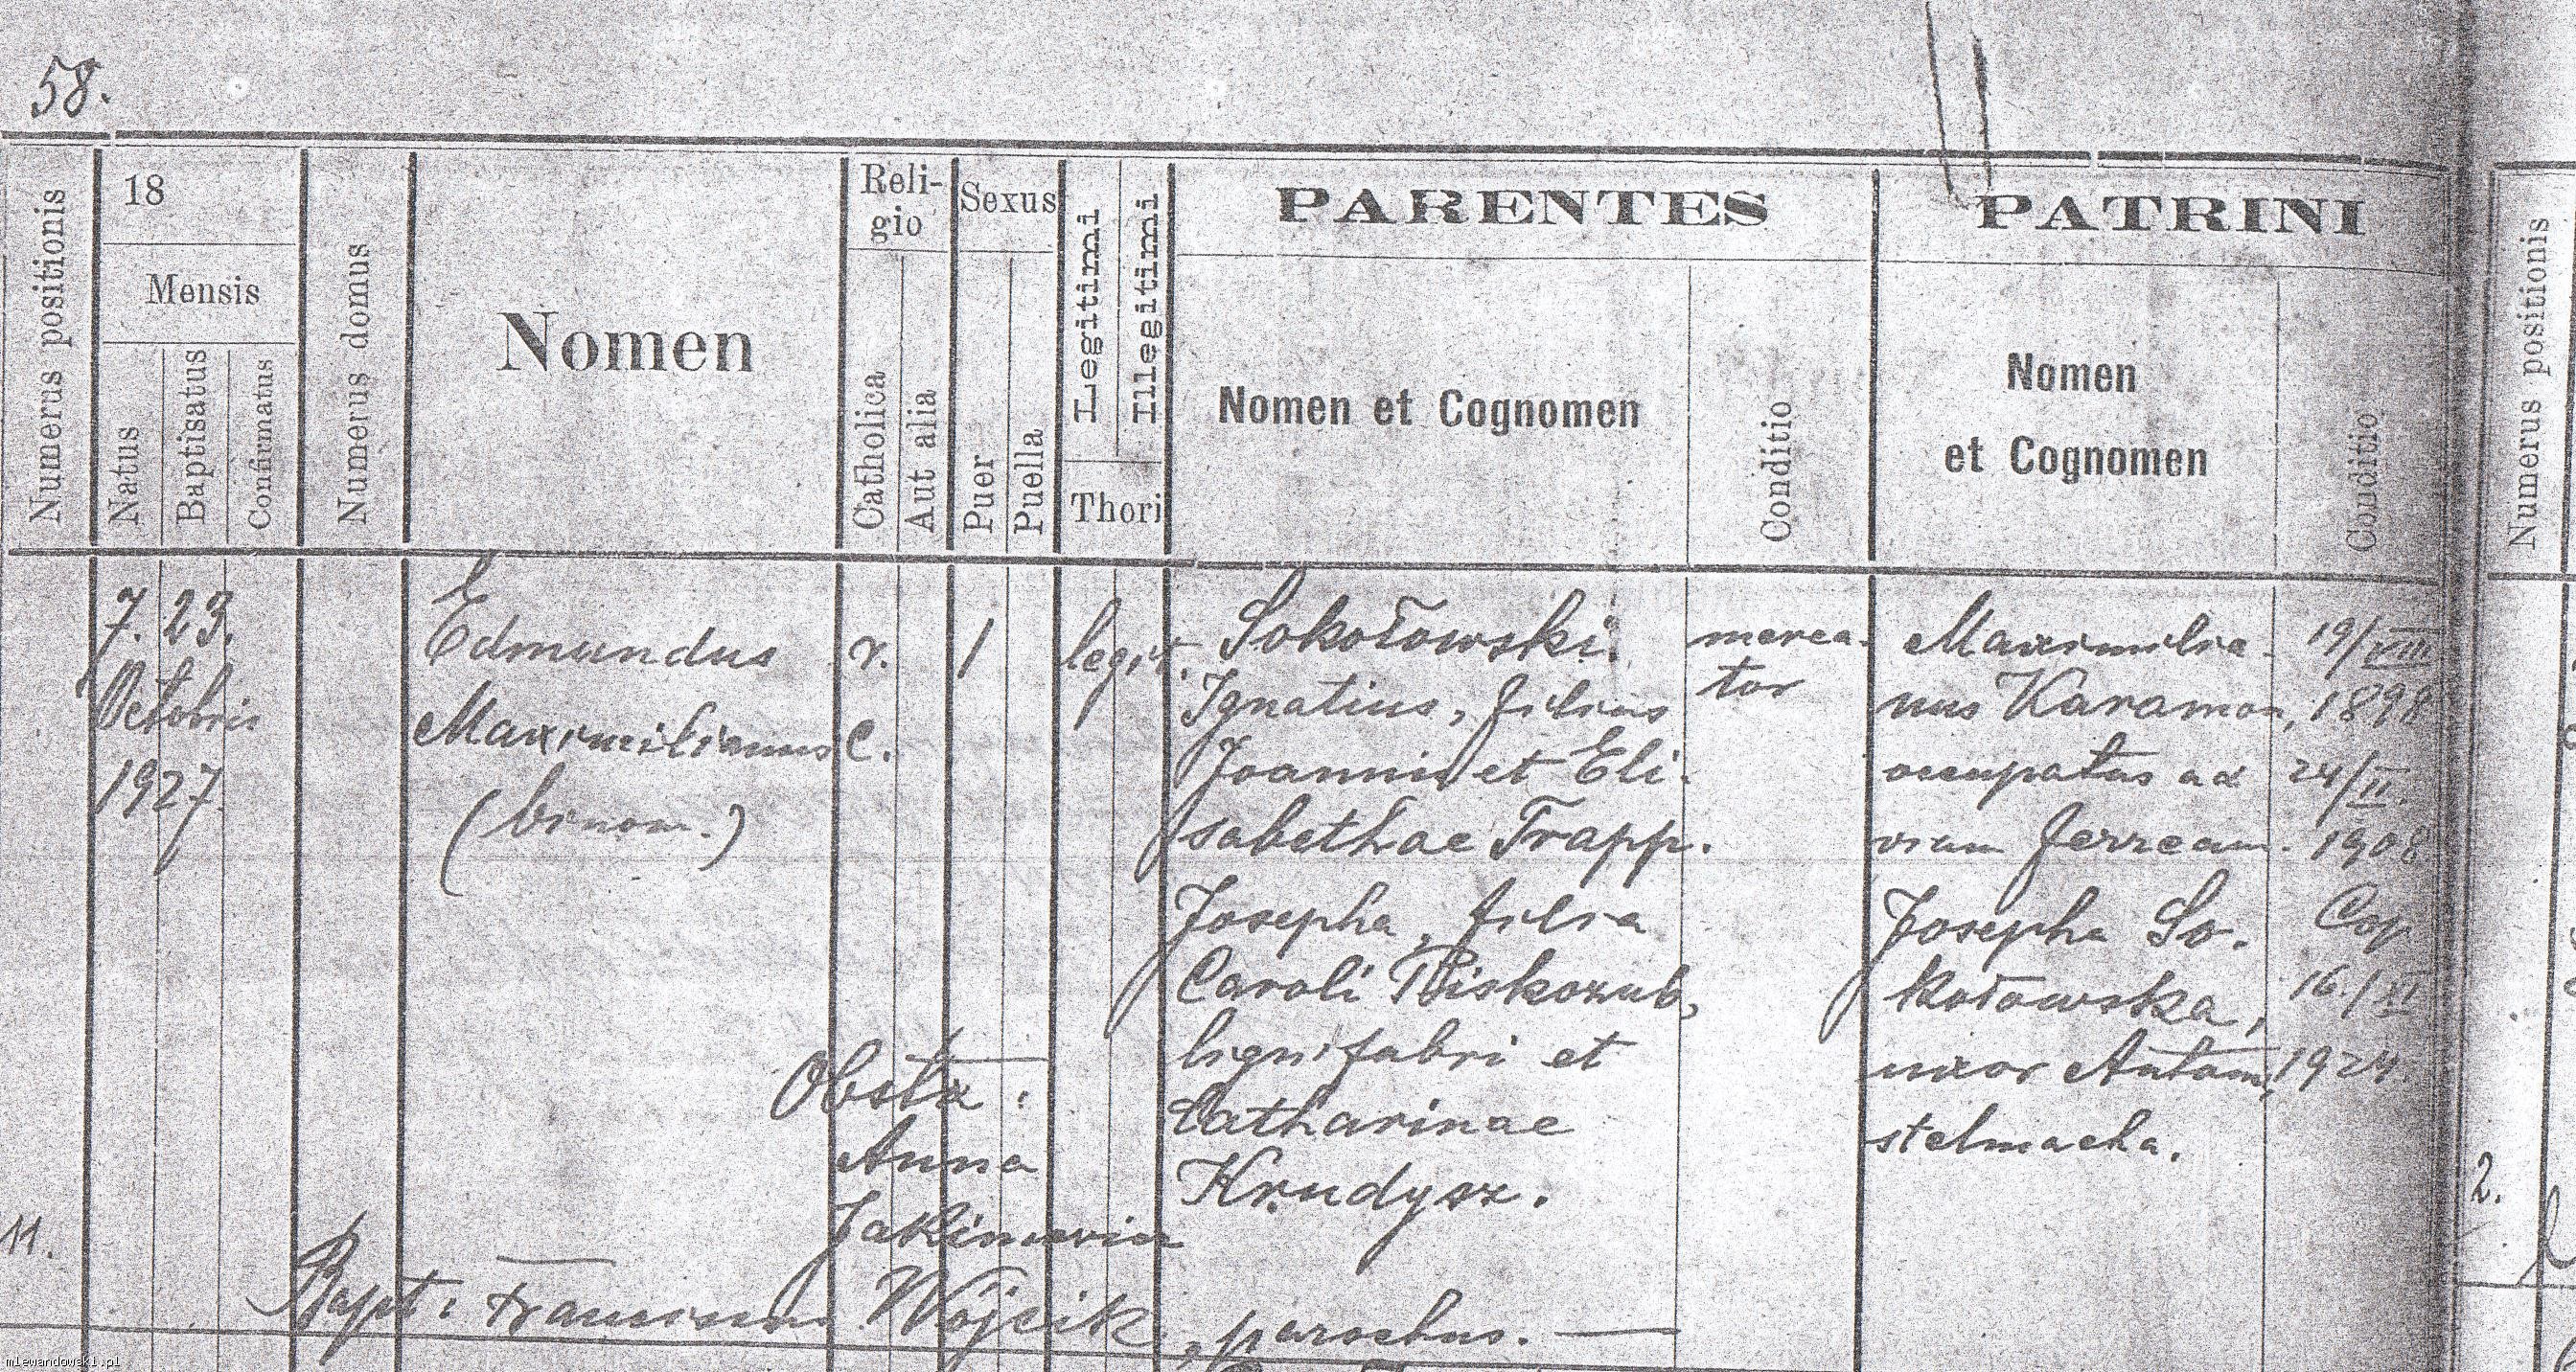 58.
Numerus positionis
18
Mensis
Natus
Baptisatus
Confirmatus
Numerus domus
Nomen
Reli-
gio
Catholica
Aut alia
Sexus
Puer
Puella
Legitimi
Illegitimi
Thori
PARENTES
Nomen et Cognomen
Conditio
PATRINI
Nomen
et Cognomen
Conditio
Numerus positionis
11.
7. 23.
Octobris
1927
Edmundus
Maximilianus
(binom.)
r.
c.
1
legit.
Sokołowski
Ignatius, filius
Joannis et Eli-
sabethae Trapp.
Josepha, filia
Caroli Piskozub,
lignifabri et
Catharinae
Krudysz.
merca-
tor
Maximilia-
nus Karamon,
occupatus ad
viam ferream.
Josepha So-
kołowska,
uxor Antoni,
stelmacha.
19/VIII
1898
24/II.
1908
Cop
16./XI
1924.
Obstx:
Anna
Jakimowicz
Bapt: Franciscus Wójcik, parochus. —
2.
mlewandowski.pl